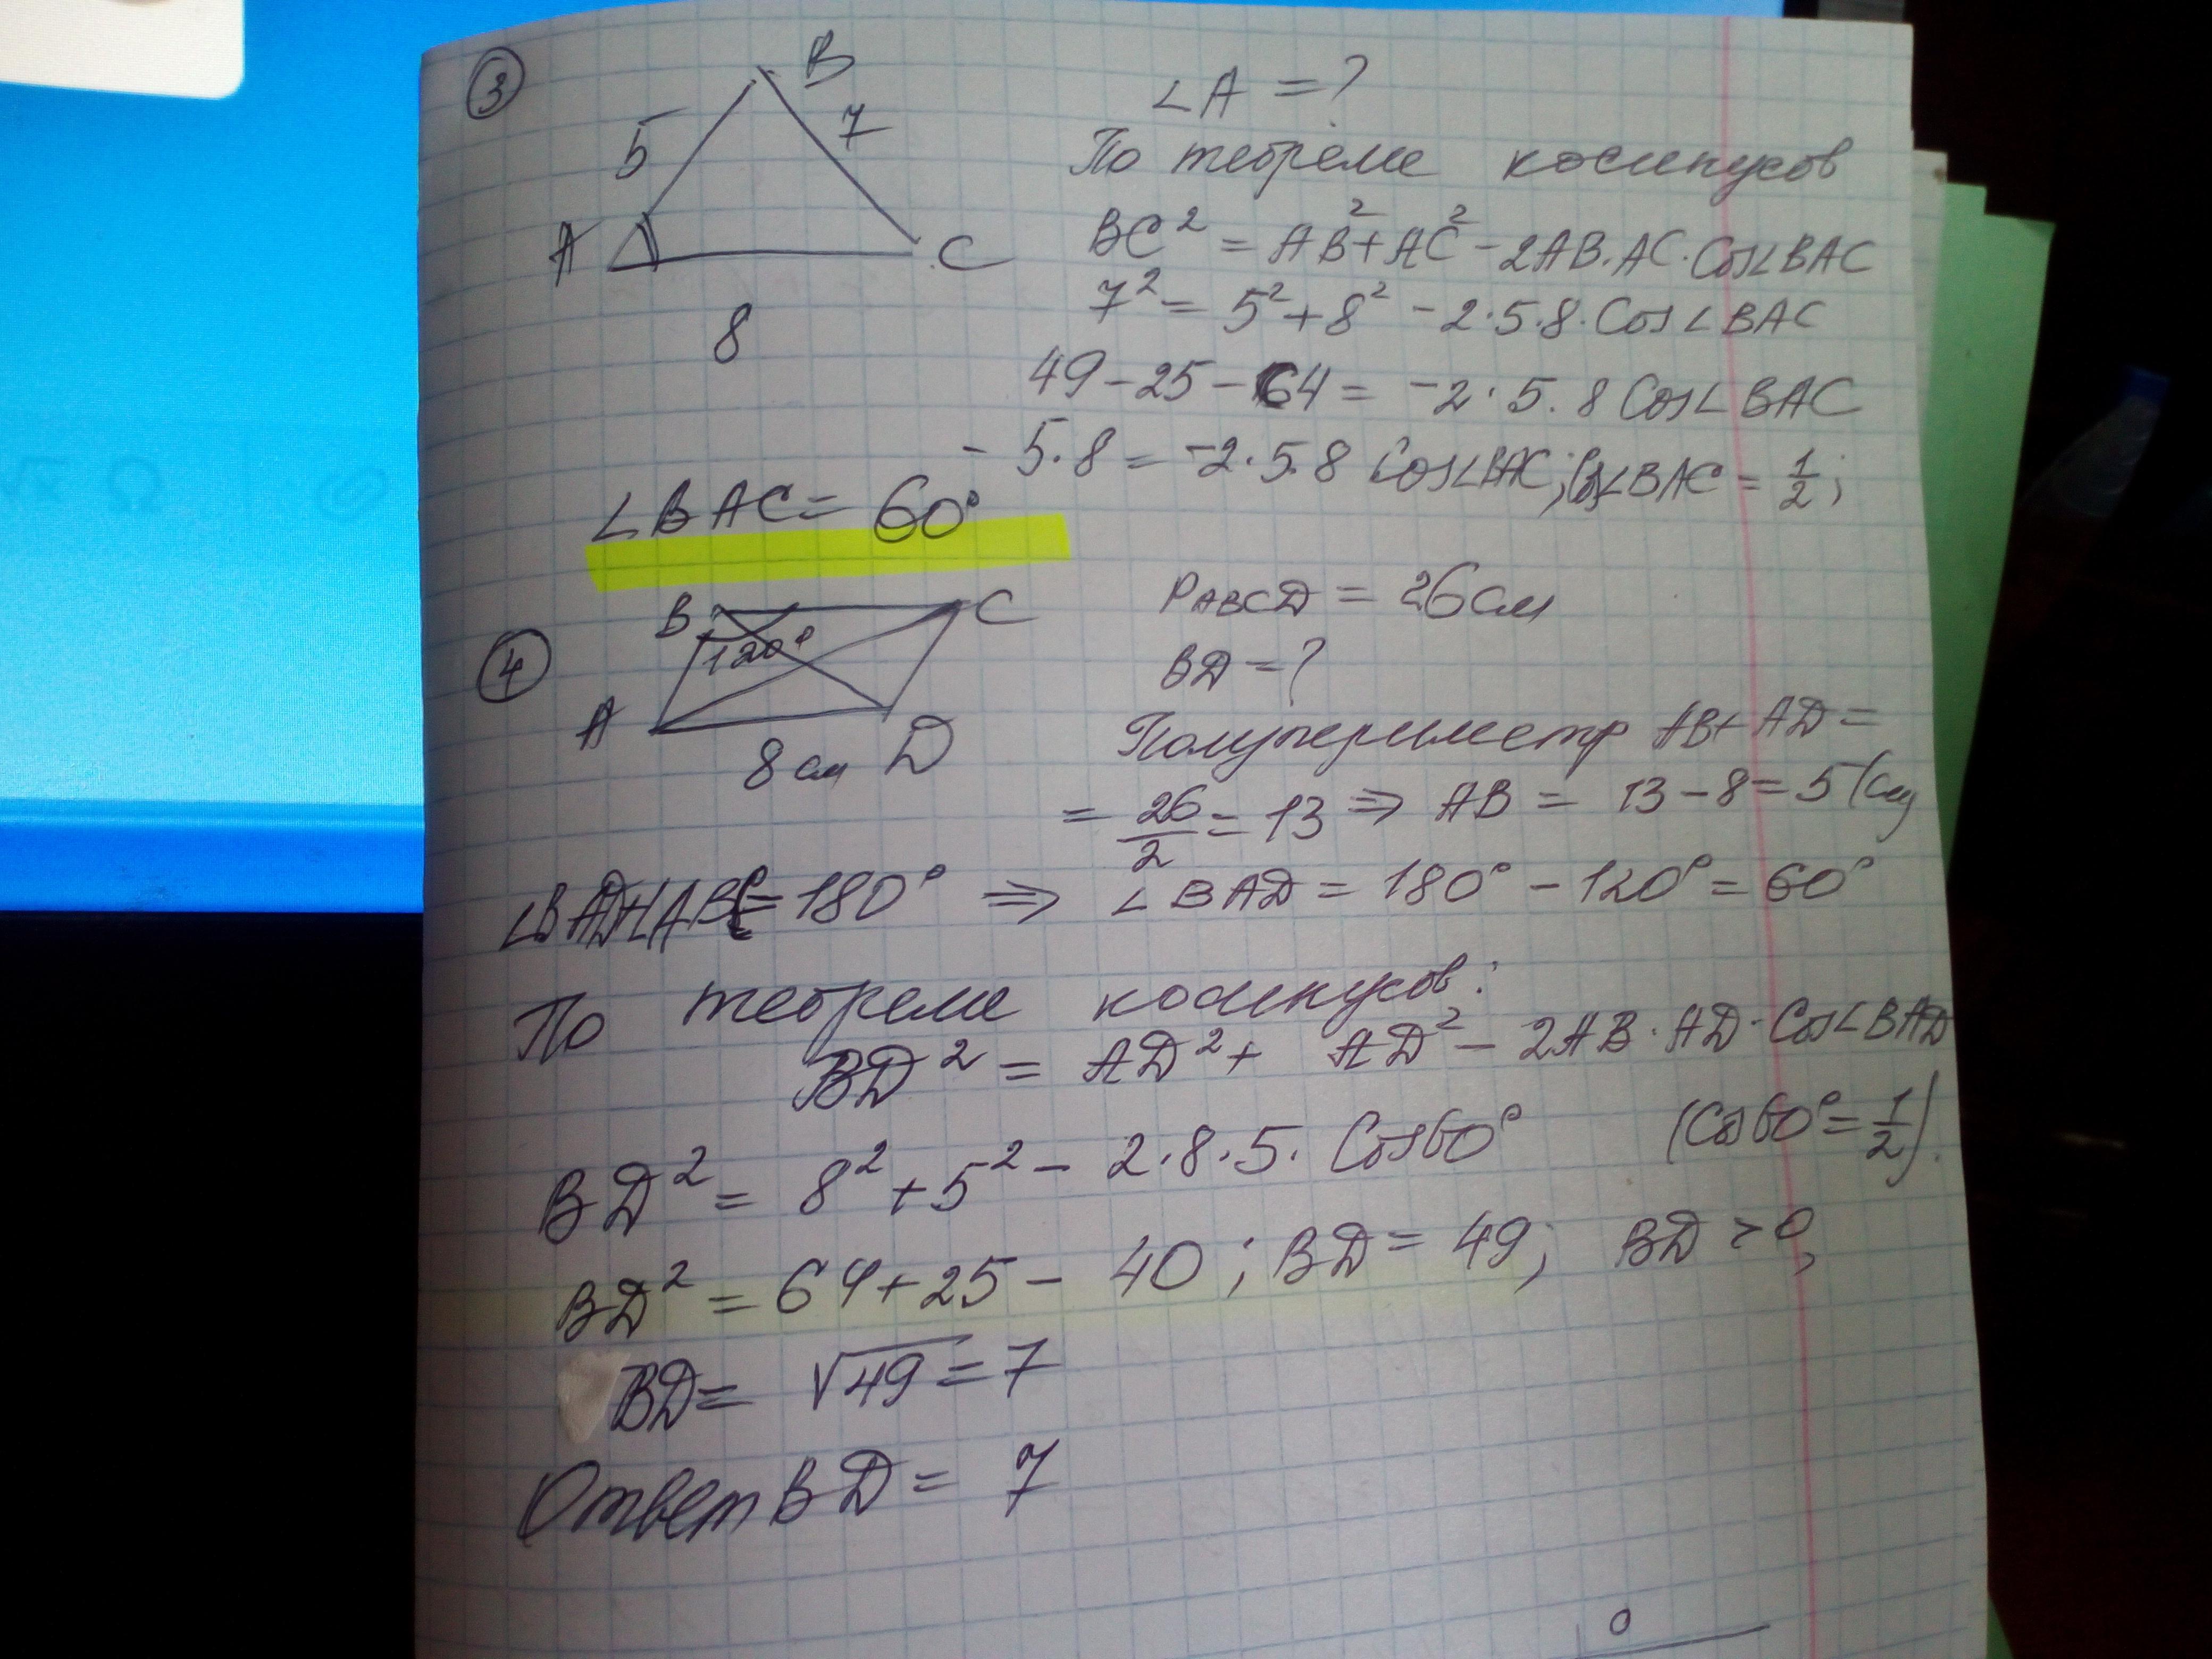 3
B
5
7
A
C
8
∠A = ?
По теореме косинусов
BC² = AB² + AC² - 2AB·AC·Cos∠BAC
7² = 5² + 8² - 2·5·8·Cos∠BAC
49 - 25 - 64 = -2·5·8 Cos∠BAC
- 5·8 = -2·5·8 Cos∠BAC; Cos∠BAC = 1/2;
∠BAC = 60°
4
B
C
120°
A
8 см D
P ABCD = 26 см
BD = ?
Полупериметр AB + AD =
= 26/2 = 13 ⇒ AB = 13 - 8 = 5 (см)
∠BAD + ∠ABC = 180° ⇒ ∠BAD = 180° - 120° = 60°
По теореме косинусов:
BD² = AD² + AD² - 2AB·AD·Cos∠BAD
BD² = 8² + 5² - 2·8·5·Cos60° (Cos60° = 1/2).
BD² = 64 + 25 - 40; BD = 49; BD > 0,
BD = √49 = 7
Ответ BD = 7
0
√x Ω